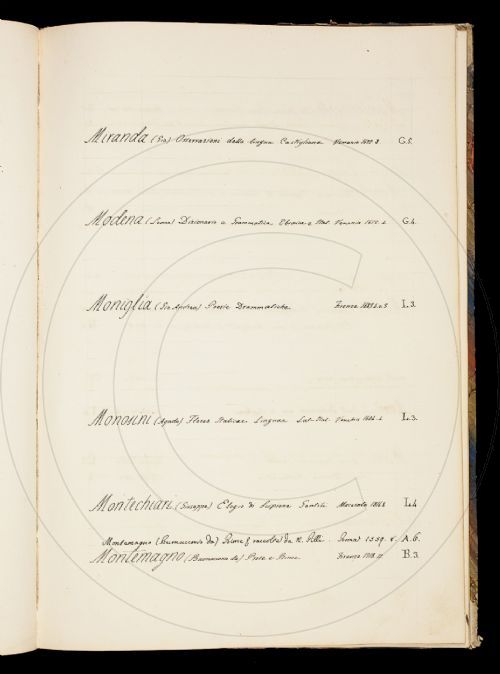 Miranda (Gio) Osservazioni della lingua Castigliana Venezia 8 G.5.
Modena (Leone) Dizionario e Grammatica Ebraica e Ital. Venezia G.4.
Moniglia (Gio Andrea) Poesie Drammatiche Firenze L.3.
Monosini (Agnolo) Flores Italicae Linguae Lat-Ital. Venetiis 1604 L.3.
Montechiari (Giuseppe) Elogio di Scipione Gentili Macerata L.4
Montemagno (Buonaccorso da) Rime raccolte da N. Pilli. Roma 1559. 8. A.6.
Montemagno (Buonaccorso da) Prose e Rime Firenze 1718 B.3.